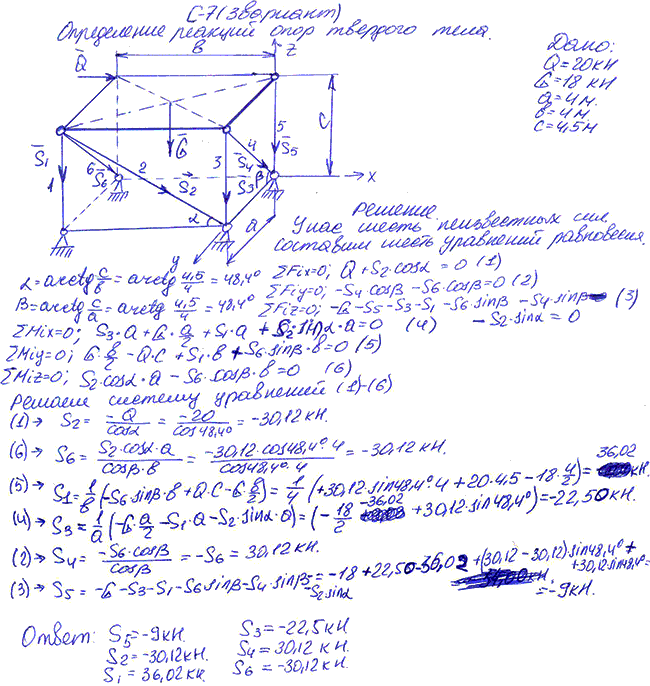 С-7 (3 вариант)
Определение реакций опор твердого тела.
Дано:
Q=20кН
G=18 кН
a=4 м.
в=4 м.
c=4,5м
Q̄
в
z
c
Ḡ
S̄₁
1
6
S̄₆
2
S̄₂
3
S̄₃
4
S̄₄
5
S̄₅
β
α
a
x
y
Решение
У нас шесть неизвестных сил,
составим шесть уравнений равновесия.
α=arctg c/в = arctg 4,5/4 = 48,4° ΣFix=0; Q+S₂·cosα = 0 (1)
ΣFiy=0; -S₄·cosβ -S₆·cosβ=0 (2)
β=arctg c/a = arctg 4,5/4 = 48,4° ΣFiz=0; -G-S₅-S₃-S₁-S₆·sinβ-S₄·sinβ- (3)
-S₂·sinα=0
ΣMix=0; S₃·a+G·a/2+S₁·a+S₂·sinα·a=0 (4)
ΣMiy=0; G·в/2-Q·c+S₁·в+S₆·sinβ·в=0 (5)
ΣMiz=0; S₂·cosα·a-S₆·cosβ·в=0 (6)
Решаем систему уравнений (1)-(6)
(1)→ S₂= -Q/cosα = -20/cos48,4° = -30,12 кН.
(6)→ S₆= S₂·cosα·a/cosβ·в = -30,12·cos48,4°·4/cos48,4°·4 = -30,12 кН.
(5)→ S₁=1/в(-S₆·sinβ·в+Q·c-G·в/2)=1/4(+30,12·sin48,4°·4+20·4,5-18·4/2)= 36,02 кН.
(4)→ S₃=1/a(-G·a/2-S₁·a-S₂·sinα·a)=(-18/2 -36,02 +30,12·sin48,4°)=-22,50кН.
(2)→ S₄= -S₆·cosβ/cosβ = -S₆= 30,12 кН.
(3)→ S₅= -G-S₃-S₁-S₆·sinβ-S₄·sinβ-S₂·sinα=-18+22,50-36,02+(30,12-30,12)·sin48,4°+
+30,12·sin48,4°=
=-9кН.
Ответ: S₅=-9кН. S₃=-22,5кН
S₂=-30,12кН. S₄=30,12 кН.
S₁=36,02кН. S₆=-30,12кН.